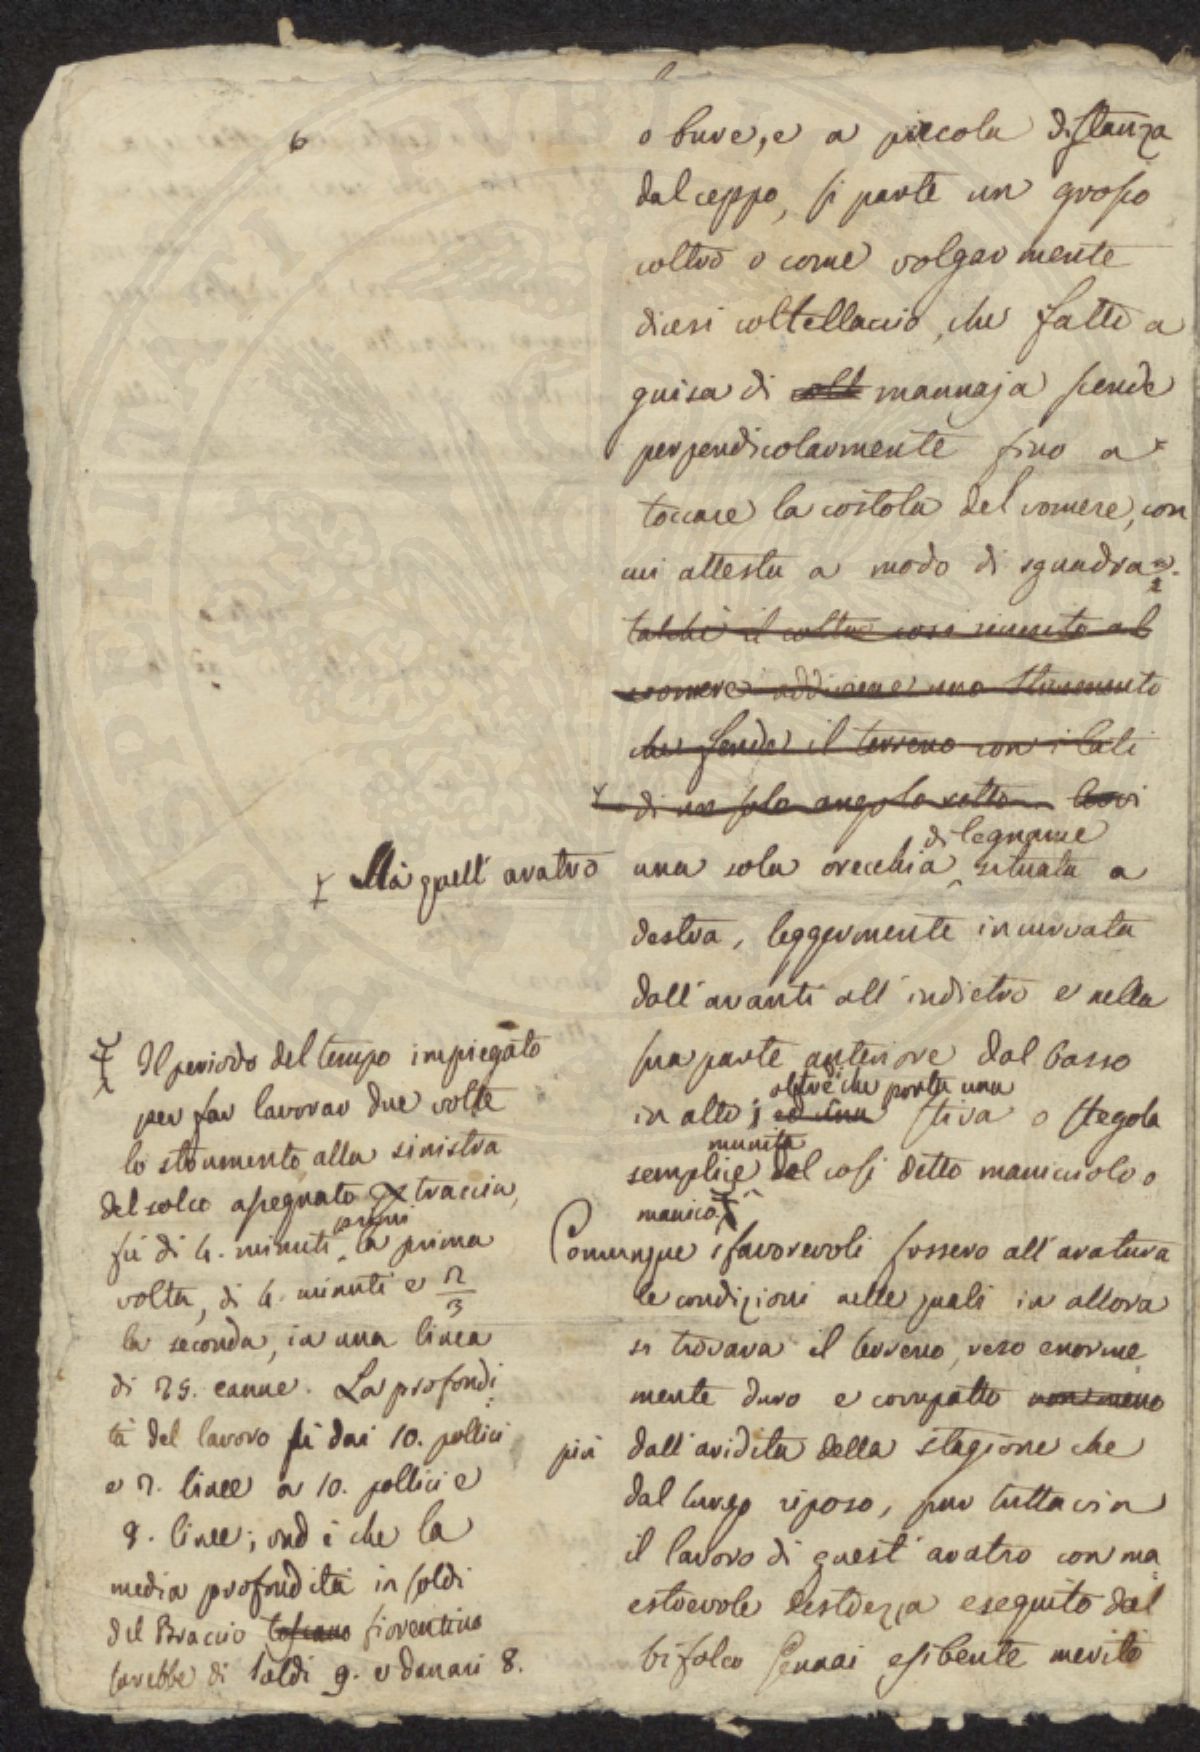 6
o bure, e a piccola distanza
dal ceppo, si parte un grosso
coltro o come volgarmente
dicesi coltellaccio, che fatto a
guisa di mannaja scende
perpendicolarmente fino a
toccare la costola del vomere, con
cui attesta a modo di squadra
talchè il coltro così riunito al
vomere addiviene uno strumento
che fende il terreno con i lati
di un solo angolo retto
Ma quell' aratro una sola orecchia di legname situata a
destra, leggermente incurvata
dall' avanti all' indietro e nella
sua parte anteriore dal basso
in alto; ed una oltre di che porta una stiva o stegola
semplice munita del così detto manicciolo o
manico.
Comunque sfavorevoli fossero all' aratura
le condizioni nelle quali in allora
si trovava il terreno, reso enorme
mente duro e compatto non meno
più dall' aridità della stagione che
dal lungo riposo, pur tuttavia
il lavoro di quest' aratro con ma
estrevole destrezza eseguito dal
bifolco esibente meritò
Il periodo del tempo impiegato
per far lavorar due volte
lo strumento alla sinistra
del solco assegnato traccia,
fù di 4. minuti primi la prima
volta, di 4. minuti e 2/3
la seconda, in una linea
di 25. canne. La profondi
tà del lavoro fù dai 10. pollici
e 2. linee a 10. pollici e
8. linee; ond è che la
media profondità in soldi
del Braccio toscano fiorentino
sarebbe di Soldi 9. e danari 8.